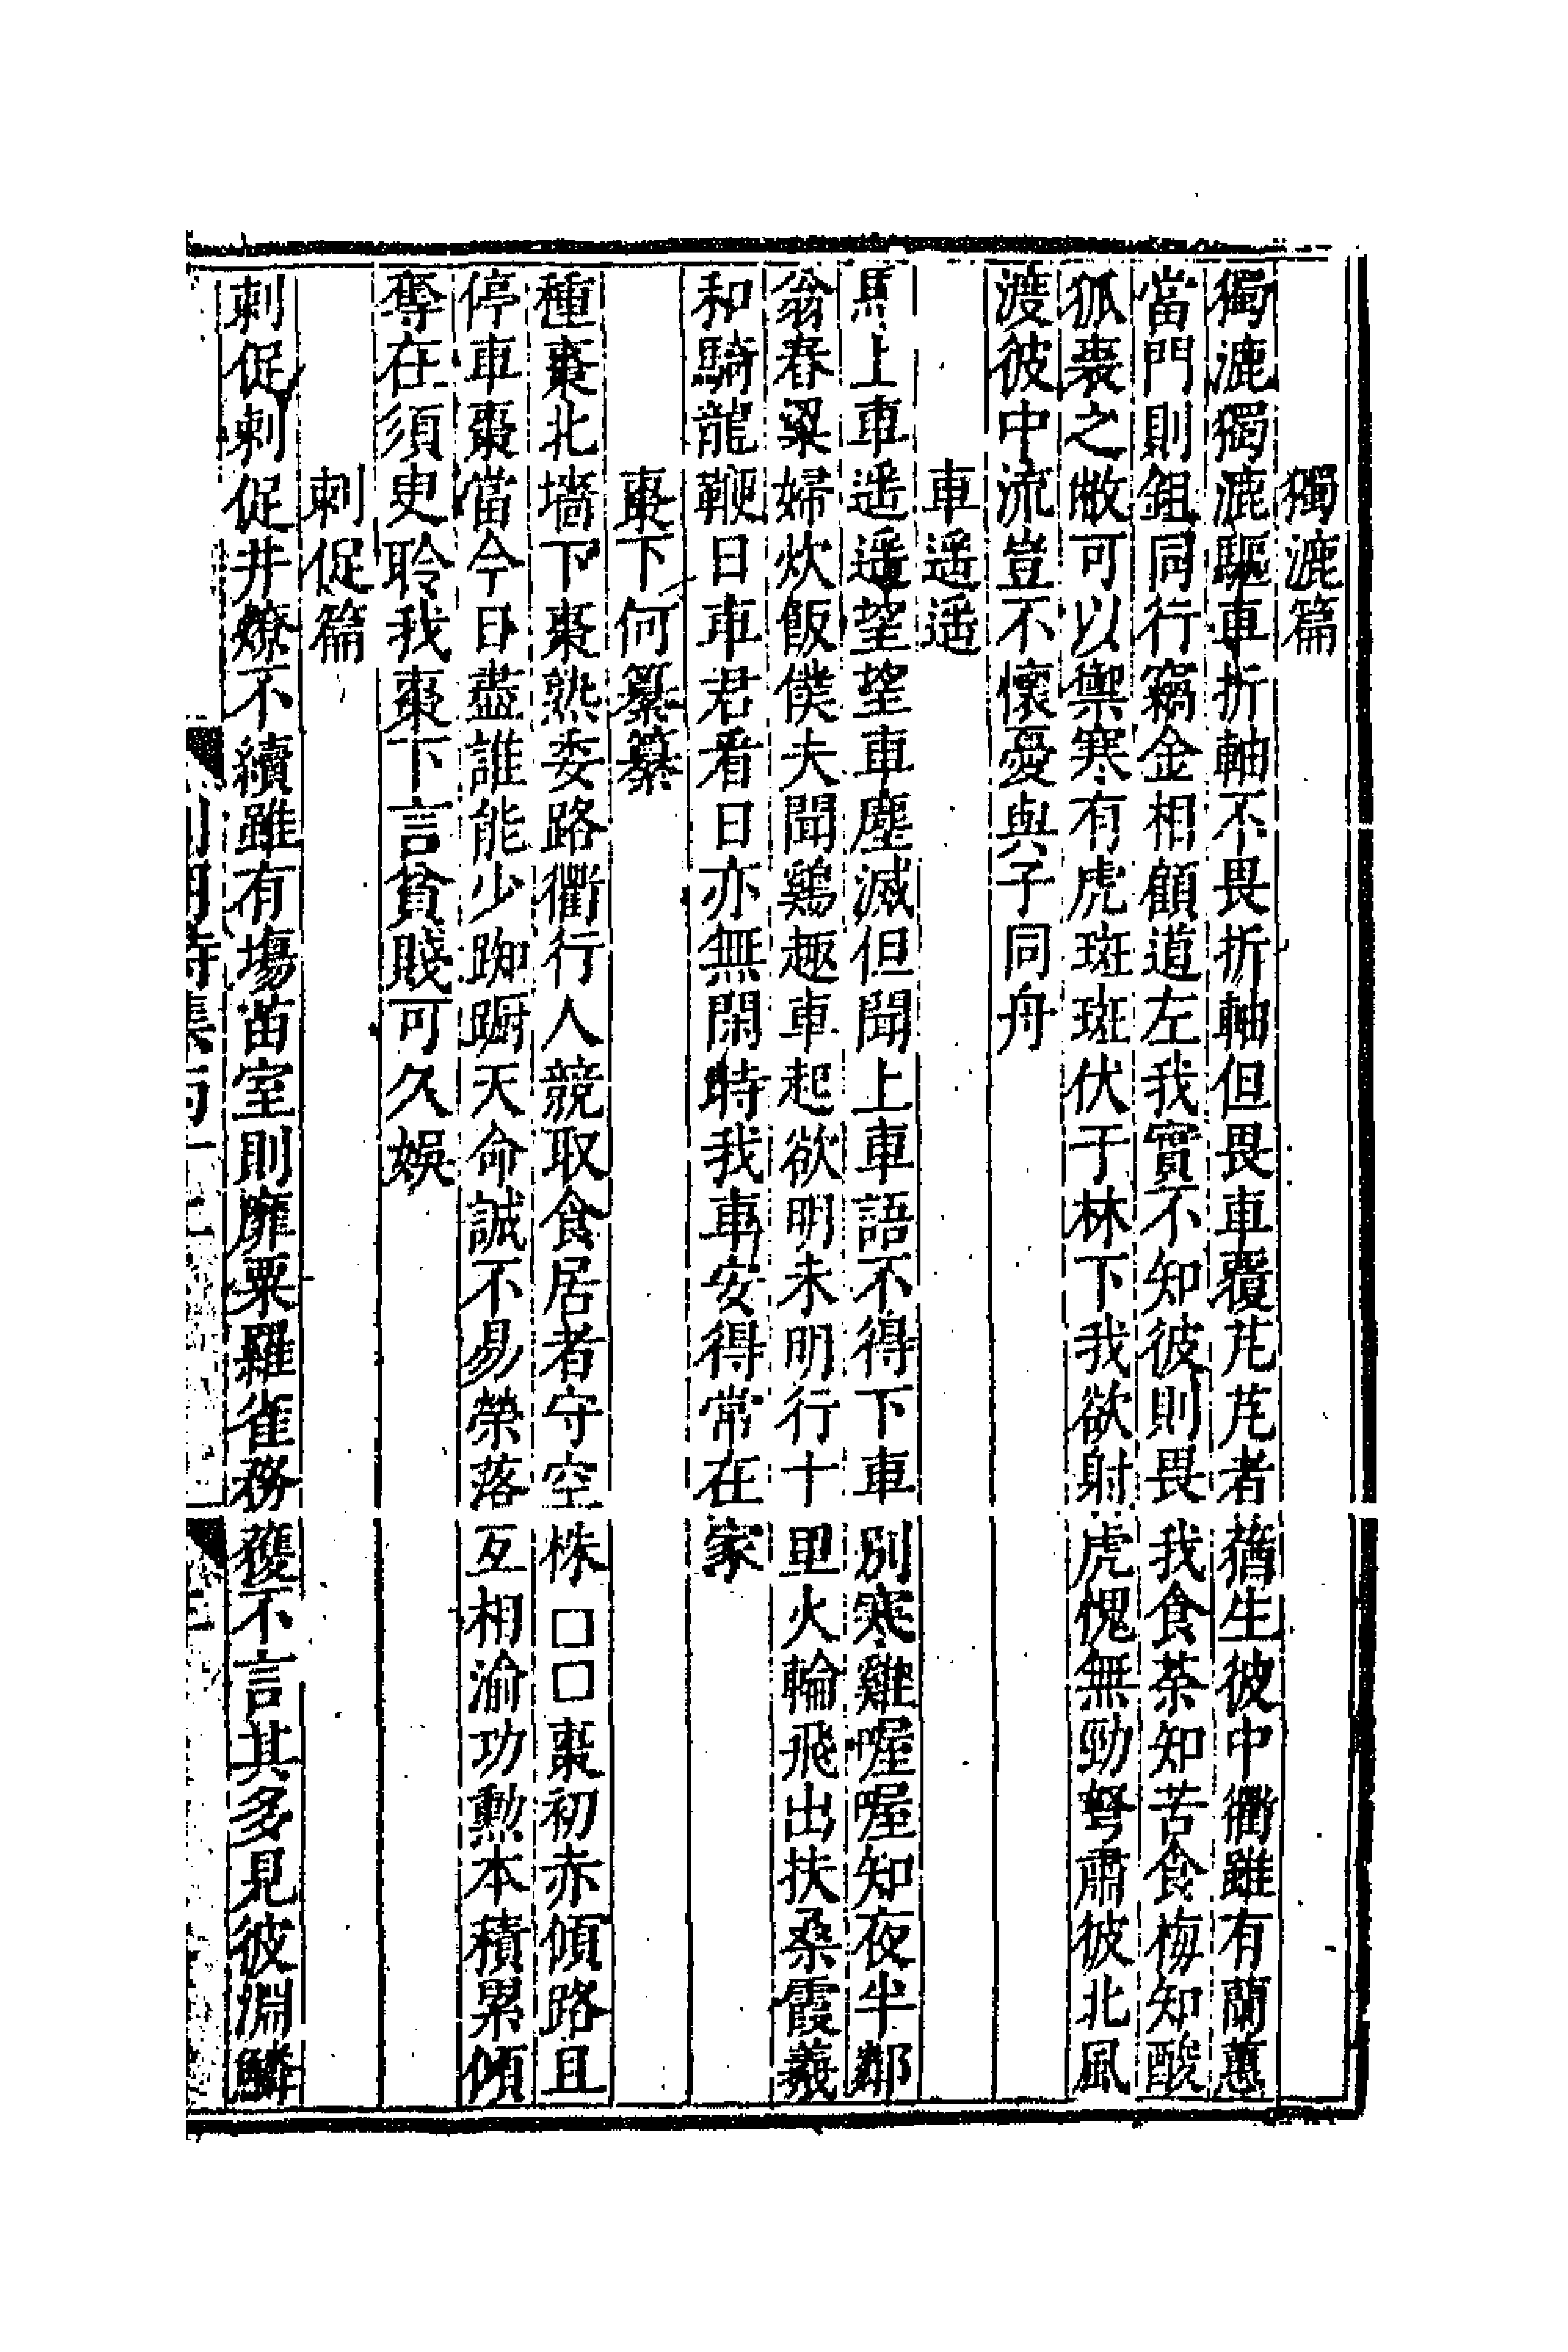 獨漉篇
獨漉獨漉驅車折軸不畏折軸但畏車覆芃芃者蕕生彼中衢雖有蘭蕙
當門則鉏同行竊金相顧道左我實不知彼則畏我食荼知苦食梅知酸
狐裘之敝可以禦寒有虎斑斑伏于林下我欲射虎愧無勁弩肅彼北風
渡彼中流豈不懷憂與子同舟
車遥遥
馬上車遥遥望望車塵滅但聞上車語不得下車別寒雞喔喔知夜半鄰
翁舂粱婦炊飯僕夫聞鷄趣車起欲明未明行十里火輪飛出扶桑霞羲
和騎龍鞭日車君看日亦無閑時我車安得常在家
棗下何纂纂
種棗北墻下棗熟委路衢行人競取食居者守空株□□棗初赤傾路且
停車棗當今日盡誰能少踟蹰天命誠不易榮落互相渝功勲本積累傾
奪在須臾聆我棗下言貧賤可久娛
刺促篇
刺促刺促井燎不續雖有塲苗室則靡粟羅雀務穫不言其多見彼淵鱗